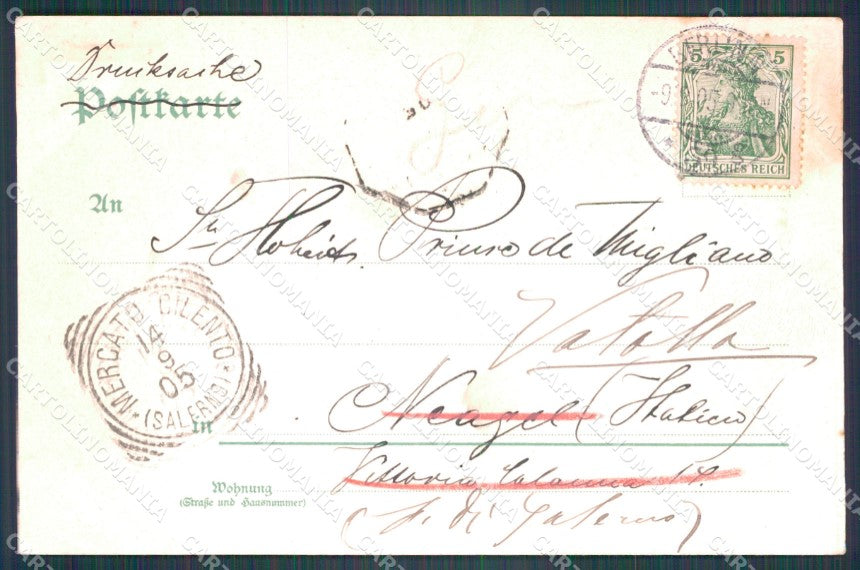 Drucksache
Postkarte
BERLIN
5 5
DEUTSCHES REICH
An
Sr. Hoheit Principe de Migliano
Vatolla
MERCATO CILENTO
14
9
05
(SALERNO)
Neapel (Italien)
in
Vittoria Colonna 14.
Wohnung
(Straße und Hausnummer)
(p. di Salerno)
CARTOLINOMANIA